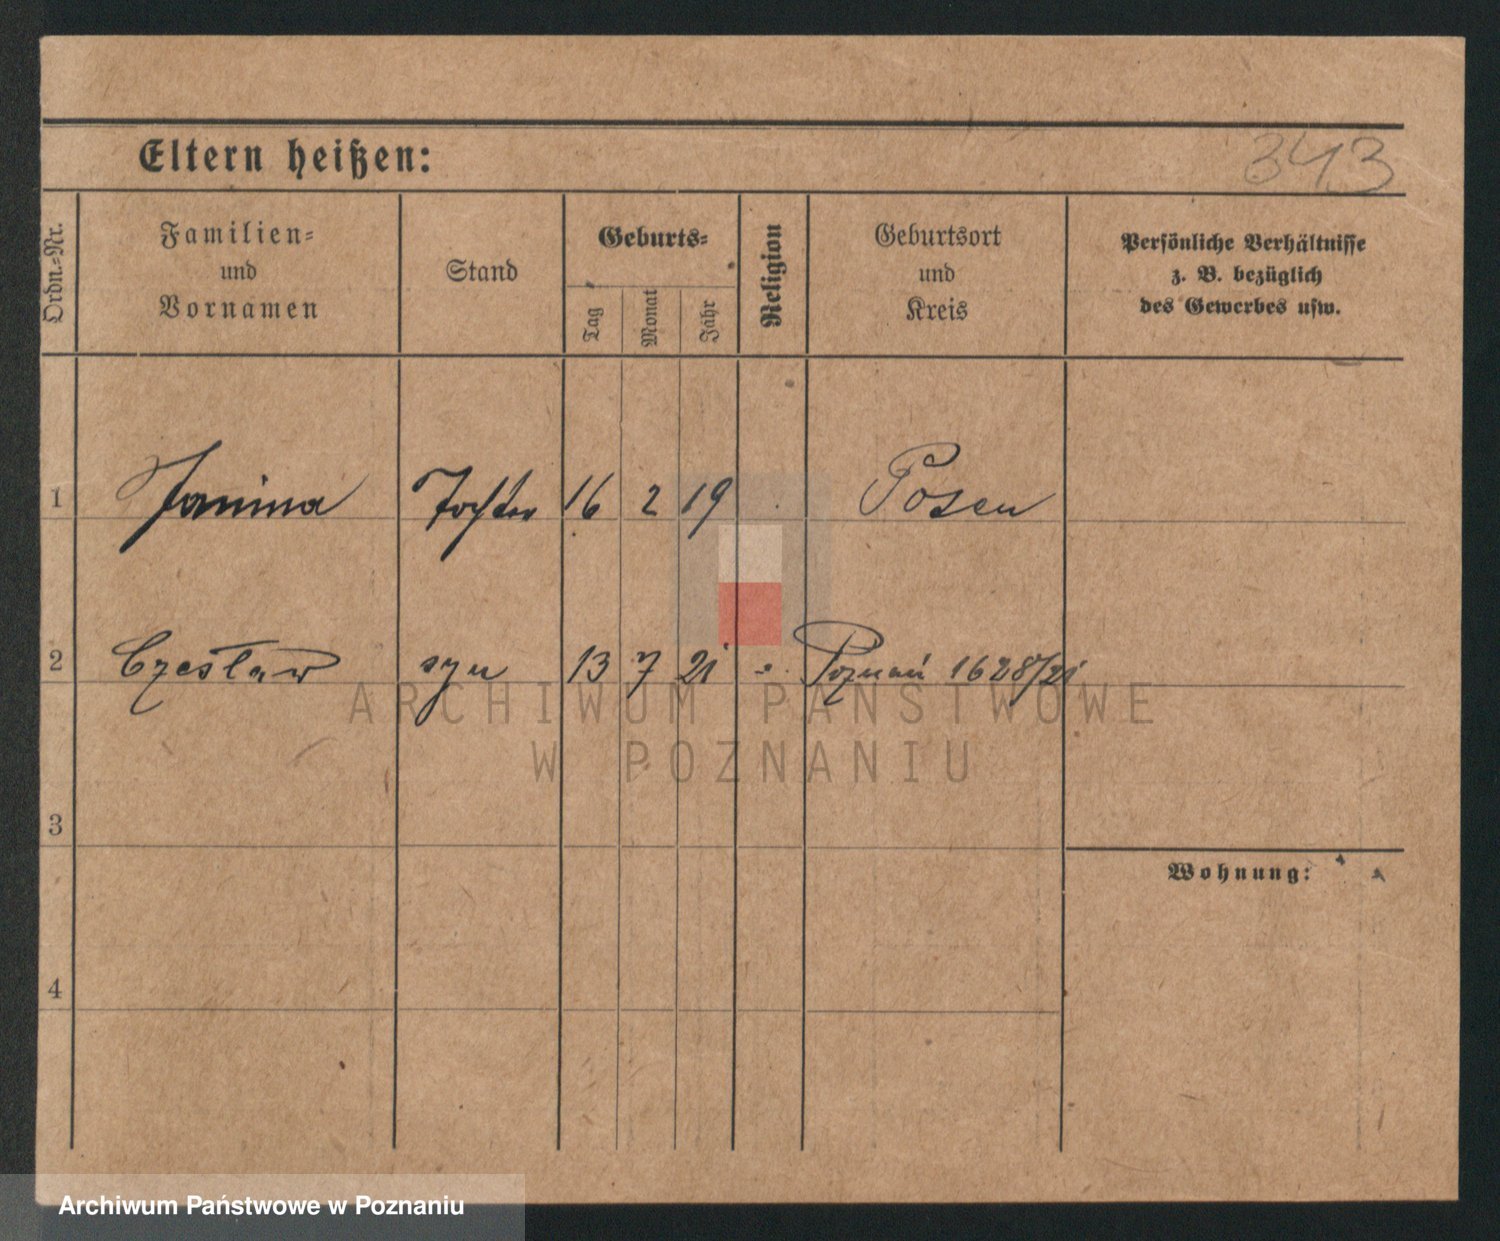 Eltern heißen:
343
Ordn.-Nr.
Familien-
und
Vornamen
Stand
Geburts-
Tag
Monat
Jahr
Religion
Geburtsort
und
Kreis
Persönliche Verhältnisse
z. B. bezüglich
des Gewerbes usw.
1 Janina Tochter 16 2 19 Posen
2 Czesław syn 13 7 21 Poznań 1628/21
ARCHIWUM PAŃSTWOWE
W POZNANIU
3
Wohnung:
4
Archiwum Państwowe w Poznaniu